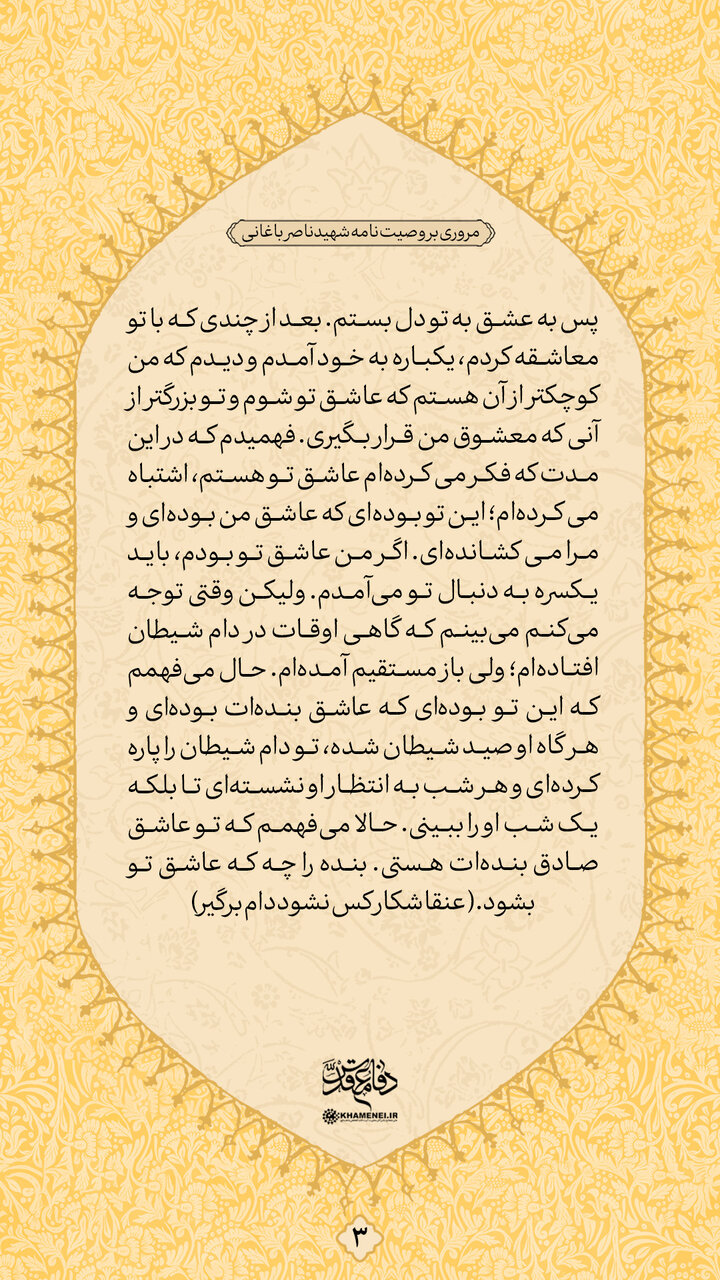 مروری بر وصیت نامه شهید ناصر باغانی
پس به عشق به تو دل بستم. بعد از چندی که با تو
معاشقه کردم، یکباره به خود آمدم و دیدم که من
کوچکتر از آن هستم که عاشق تو شوم و تو بزرگتر از
آنی که معشوق من قرار بگیری. فهمیدم که در این
مدت که فکر می کرده‌ام عاشق تو هستم، اشتباه
می کرده‌ام؛ این تو بوده‌ای که عاشق من بوده‌ای و
مرا می کشانده‌ای. اگر من عاشق تو بودم، باید
یکسره به دنبال تو می‌آمدم. ولیکن وقتی توجه
می‌کنم می‌بینم که گاهی اوقات در دام شیطان
افتاده‌ام؛ ولی باز مستقیم آمده‌ام. حال می‌فهمم
که این تو بوده‌ای که عاشق بنده‌ات بوده‌ای و
هر گاه او صید شیطان شده، تو دام شیطان را پاره
کرده‌ای و هر شب به انتظار او نشسته‌ای تا بلکه
یک شب او را ببینی. حالا می‌فهمم که تو عاشق
صادق بنده‌ات هستی. بنده را چه که عاشق تو
بشود.(عنقا شکار کس نشود دام برگیر)
دفاع مقدس
KHAMENEI.IR
۳